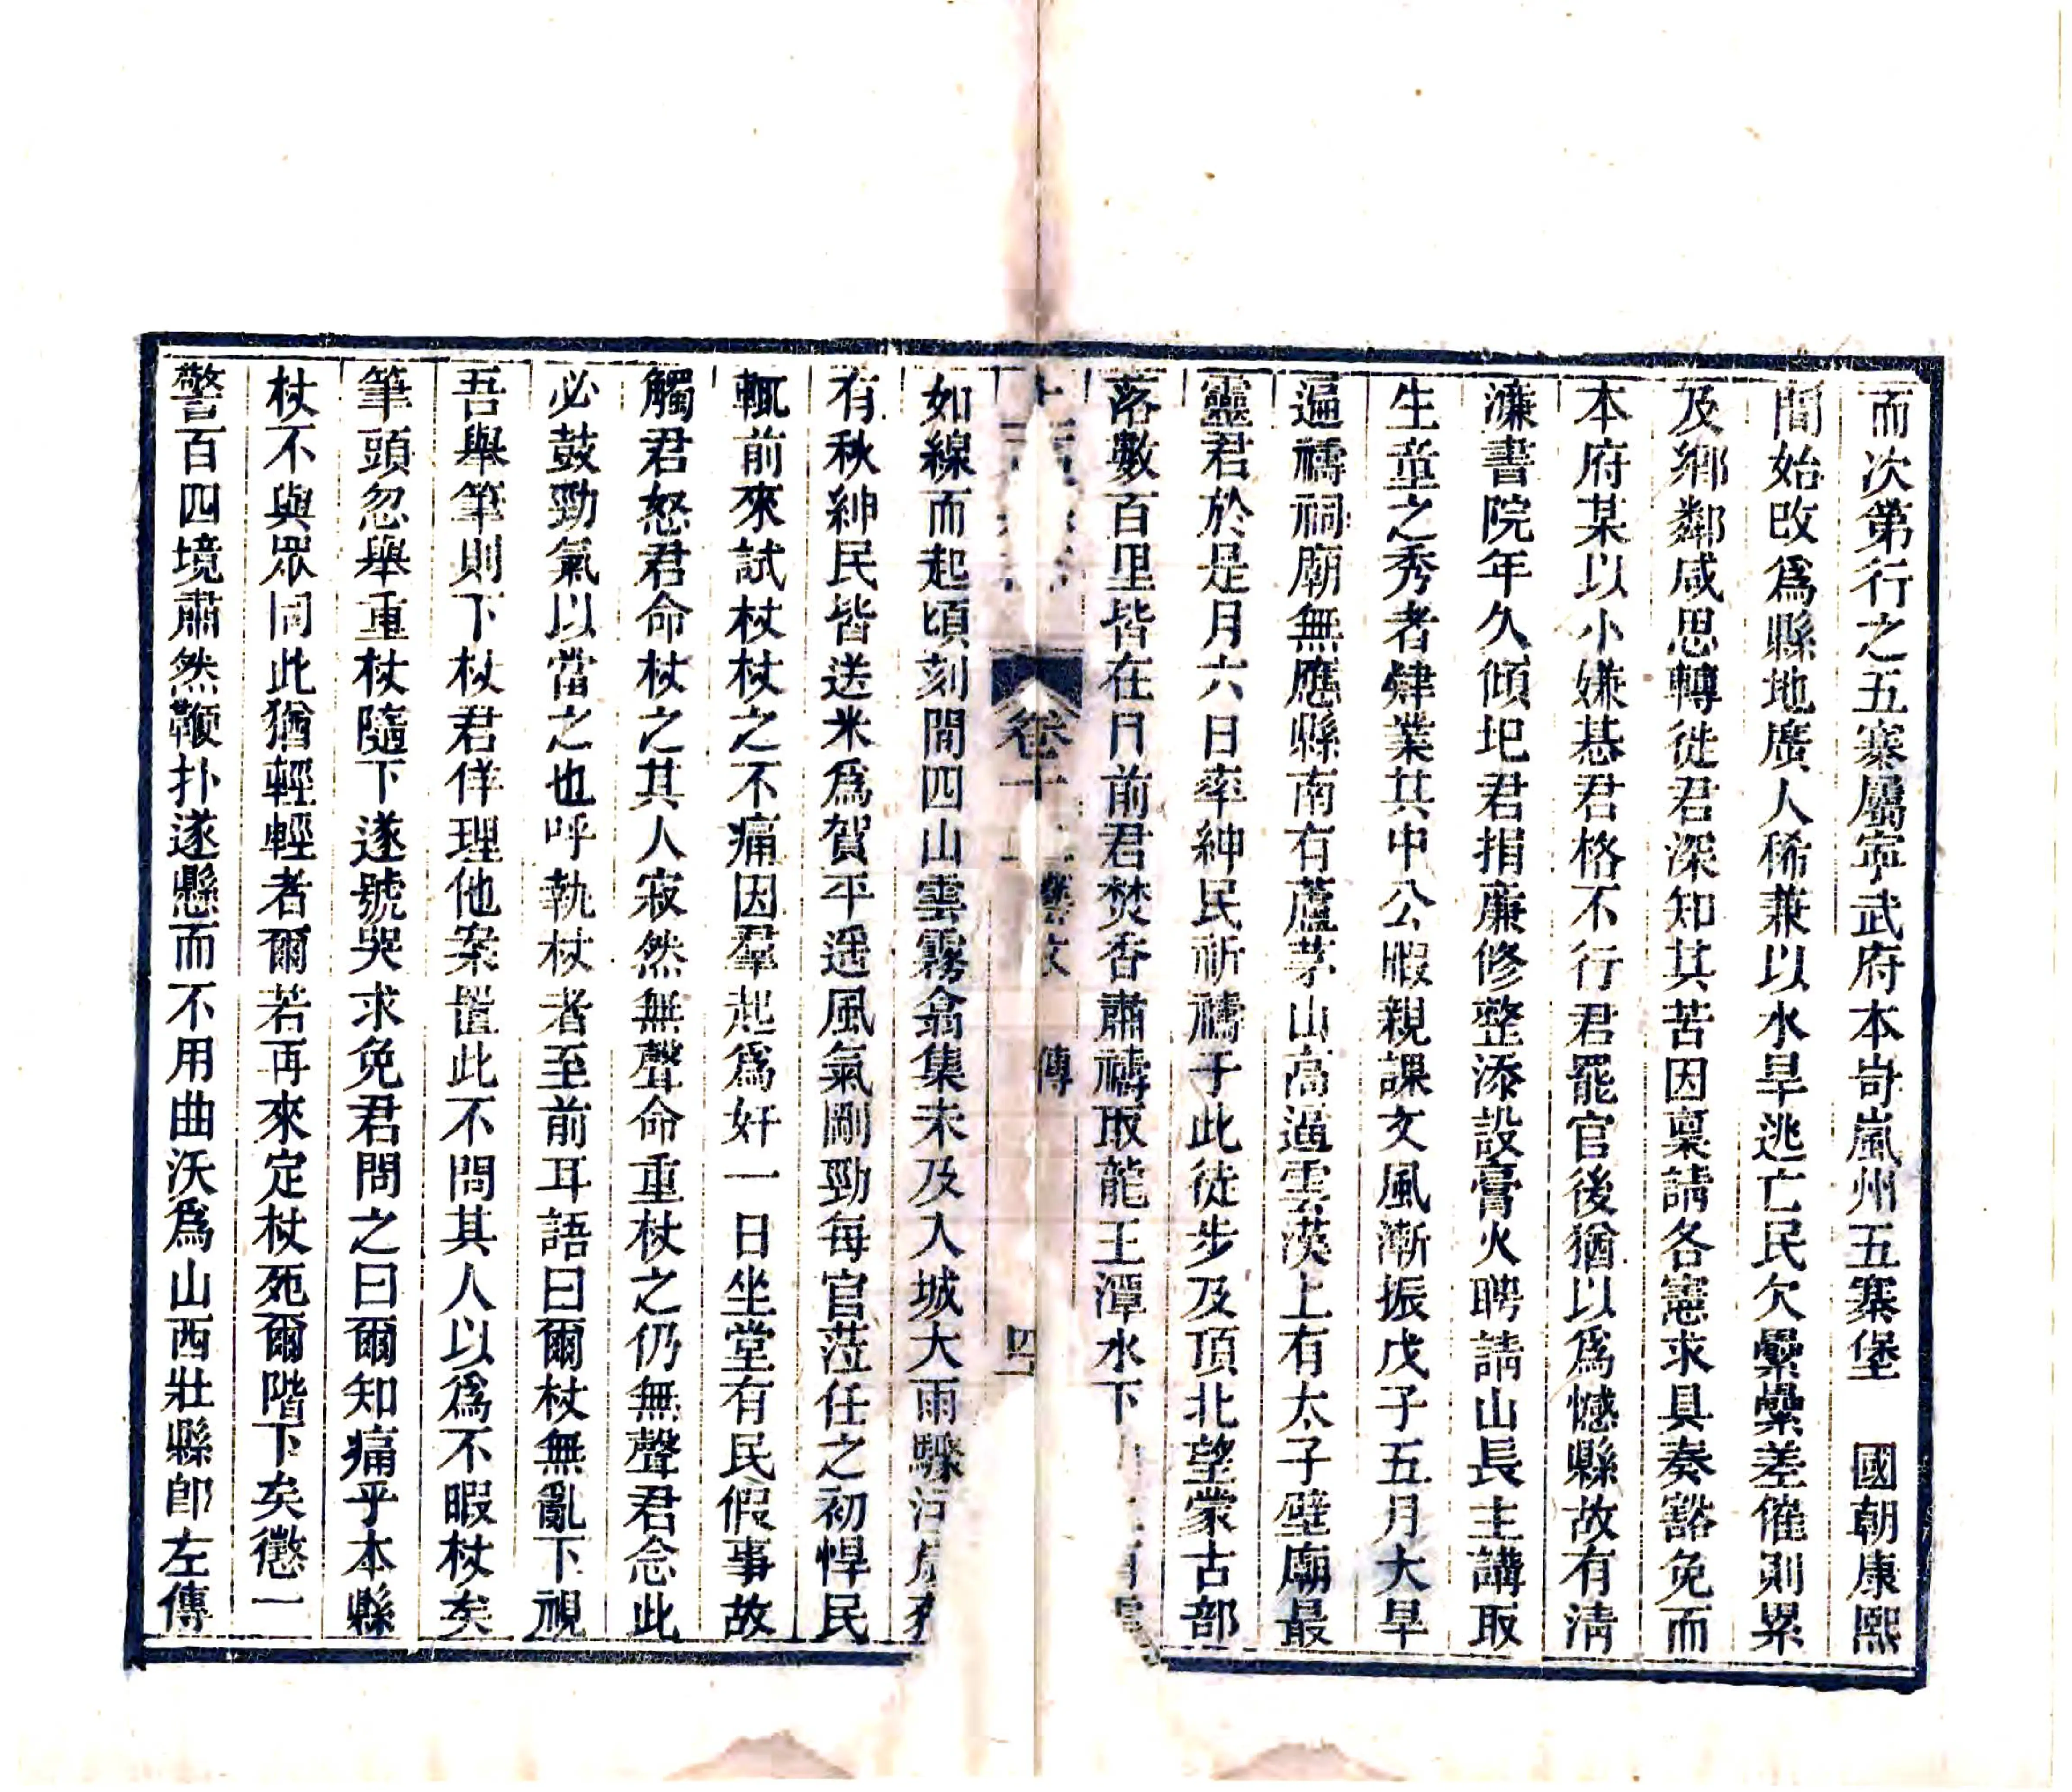 而次第行之五寨屬寧武府本岢嵐州五寨堡　國朝康熙
間始改爲縣地廣人稀兼以水旱逃亡民欠纍纍差催則累
及鄉鄰咸思轉徙君深知其苦因稟請各憲求具奏豁免而
本府某以小嫌惎君格不行君罷官後猶以爲憾縣故有清
濂書院年久傾圯君捐廉修整添設膏火聘請山長主講取
生童之秀者肄業其中公暇親課文風漸振戊子五月大旱
遍禱祠廟無應縣南有蘆芽山高逼雲漢上有太子壁廟最
靈君於是月六日率紳民祈禱于此徒步及頂北望蒙古部
落數百里皆在目前君焚香肅禱取龍王潭水下
卷十　藝文　傳　四
如線而起頃刻間四山雲霧翕集未及入城大雨驟
有秋紳民皆送米爲賀平遥風氣剛勁每官莅任之初悍民
輒前來試杖杖之不痛因羣起爲奸一日坐堂有民假事故
觸君怒君命杖之其人寂然無聲命重杖之仍無聲君念此
必鼓勁氣以當之也呼執杖者至前耳語曰爾杖無亂下視
吾舉筆則下杖君佯理他案置此不問其人以爲不暇杖矣
筆頭忽舉重杖隨下遂號哭求免君問之曰爾知痛乎本縣
杖不與眾同此猶輕輕者爾若再來定杖死爾階下矣懲一
警百四境肅然鞭扑遂懸而不用曲沃爲山西壯縣卽左傳